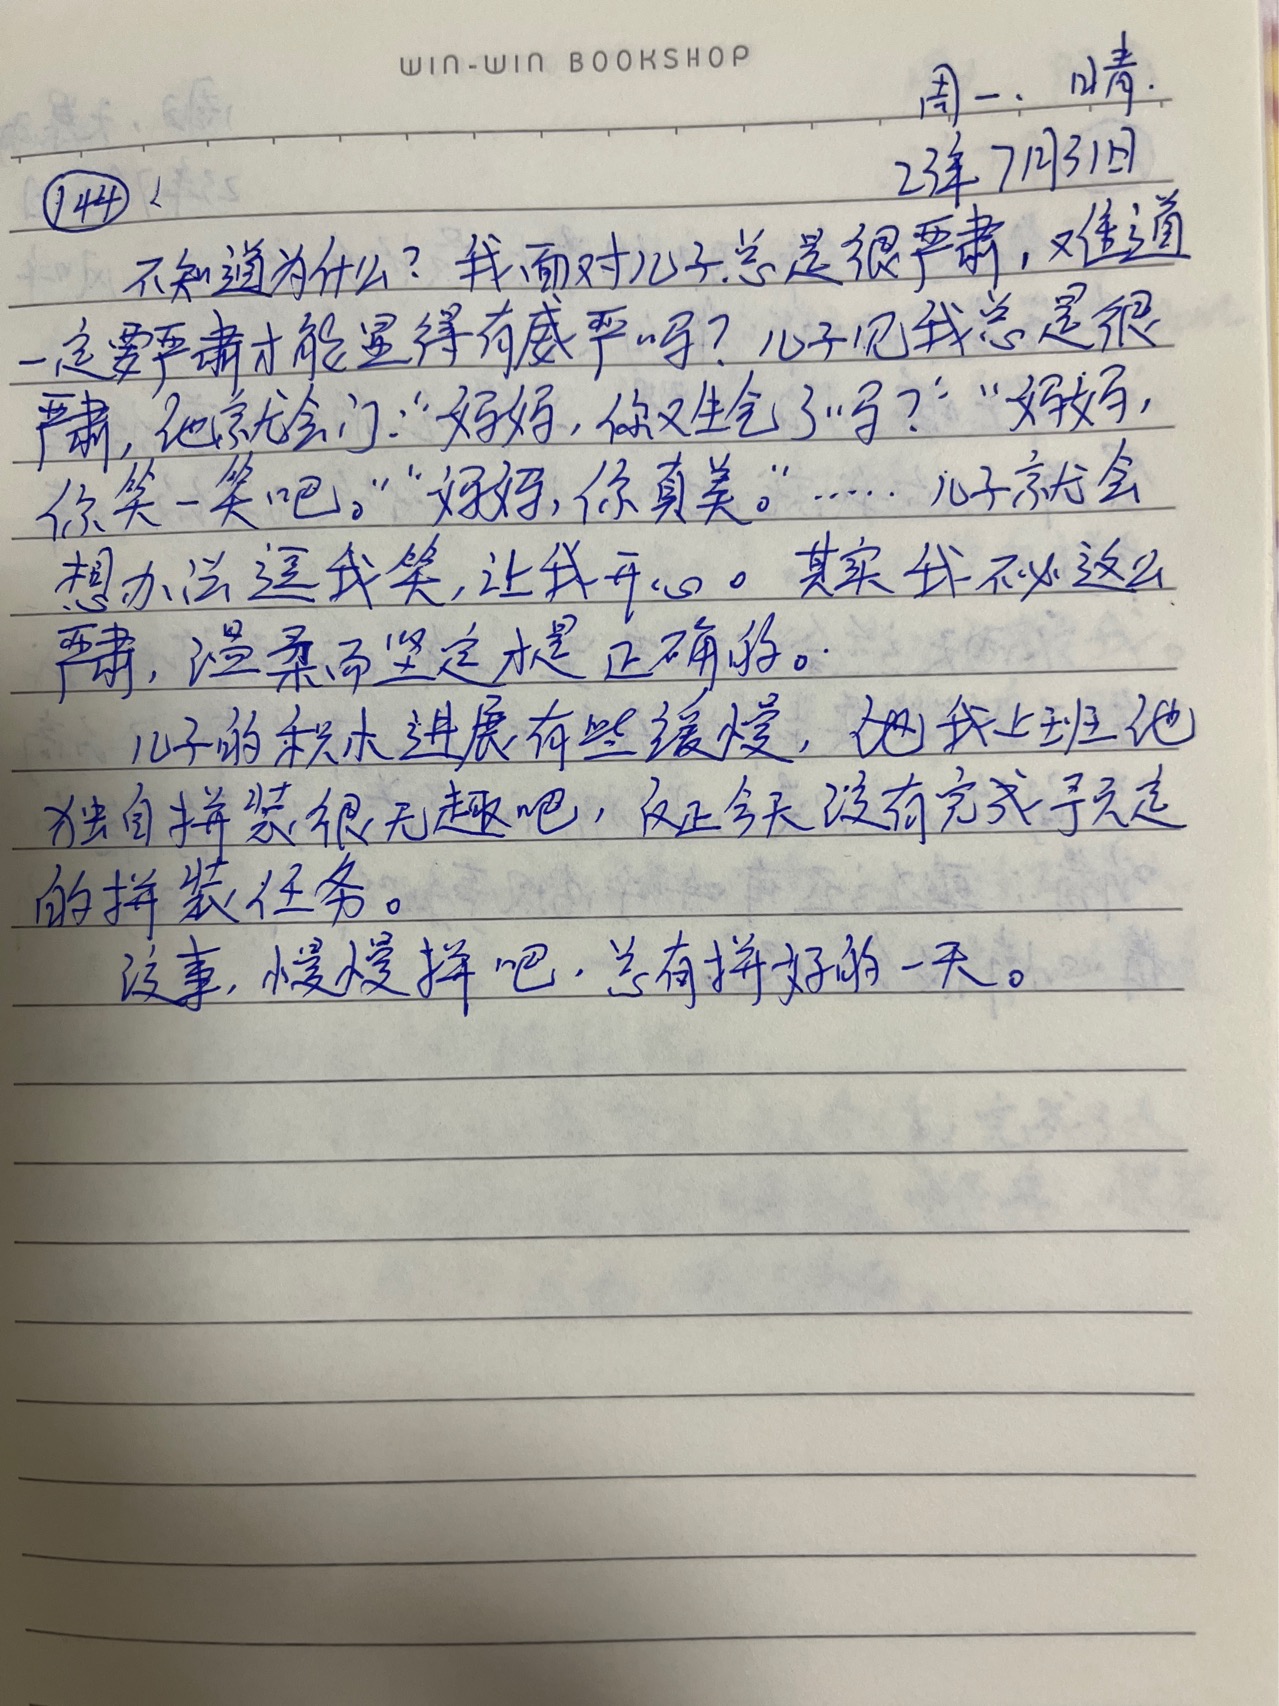 WIN-WIN BOOKSHOP
周一. 晴.
23年7月31日
144
不知道为什么？我面对儿子总是很严肃，难道
一定要严肃才能显得有威严吗？儿子见我总是很
严肃，他就会问：“妈妈，你又生气了吗？”“妈妈，
你笑一笑吧。”“妈妈，你真美。”…… 儿子就会
想办法逗我笑，让我开心。其实我不必这么
严肃，温柔而坚定才是正确的。
儿子的积木进展有些缓慢，我上班他
独自拼装很无趣吧，反正今天没有完成预定
的拼装任务。
没事，慢慢拼吧，总有拼好的一天。